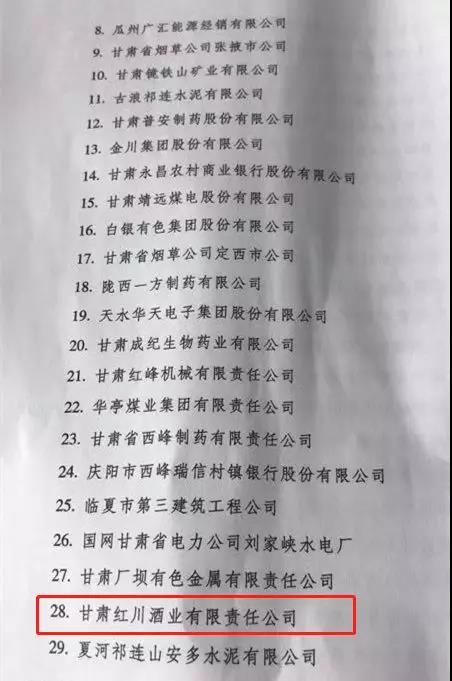 8. 瓜州广汇能源经销有限公司
9. 甘肃省烟草公司张掖市公司
10. 甘肃镜铁山矿业有限公司
11. 古浪祁连水泥有限公司
12. 甘肃普安制药股份有限公司
13. 金川集团股份有限公司
14. 甘肃永昌农村商业银行股份有限公司
15. 甘肃靖远煤电股份有限公司
16. 白银有色集团股份有限公司
17. 甘肃省烟草公司定西市公司
18. 陇西一方制药有限公司
19. 天水华天电子集团股份有限公司
20. 甘肃成纪生物药业有限公司
21. 甘肃红峰机械有限责任公司
22. 华亭煤业集团有限责任公司
23. 甘肃省西峰制药有限责任公司
24. 庆阳市西峰瑞信村镇银行股份有限公司
25. 临夏市第三建筑工程公司
26. 国网甘肃省电力公司刘家峡水电厂
27. 甘肃厂坝有色金属有限责任公司
28. 甘肃红川酒业有限责任公司
29. 夏河祁连山安多水泥有限公司